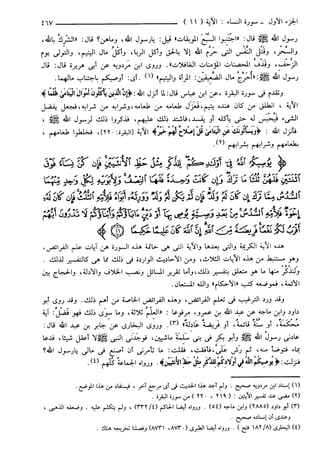 الجزء الأول ـ سورة النساء : الآية ( ١١ ) ٤٦٧
رسول الله ﷺ قال: «اجتنبوا السبع الموبقات» قيل: يارسول الله، وماهن؟ قال: «الشرك بالله،
والسحر، وقتل النفس التي حرم الله إلا بالحق وأكل الربا، وأكل مال اليتيم، والتولي يوم
الزحف، وقذف المحصنات المؤمنات الغافلات». وروى ابن مردويه عن أبي هريرة قال: قال
رسول الله ﷺ: «أحرج مال الضعيفين: المرأة واليتيم» (١) .أي: أوصيكم باجتناب مالهما.
وتقدم في سورة البقرة ،عن ابن عباس قال:لما أنزل الله: ﴿إن الذين يأكلون أموال اليتامى ظلما﴾
الآية ، انطلق من كان عنده يتيم،فعزل طعامه من طعامه،وشرابه من شرابه،فجعل يفضل
الشيء ،فيحبس له حتى يأكله أو يفسد،فاشتد ذلك عليهم، فذكروا ذلك لرسول الله ﷺ ،
فأنزل الله : ﴿ويسألونك عن اليتامى قل إصلاح لهم خير﴾ الآية [البقرة: ٢٢٠]، فخلطوا طعامهم ،
بطعامهم وشرابهم بشرابهم (٢).
﴿ يوصيكم الله في أولادكم للذكر مثل حظ الأنثيين فإن كن نساء فوق
اثنتين فلهن ثلثا ما ترك وإن كانت واحدة فلها النصف ولأبويه لكل واحد منهما
السدس مما ترك إن كان له ولد فإن لم يكن له ولد وورثه أبواه فلأمه الثلث فإن كان له
إخوة فلأمه السدس من بعد وصية يوصي بها أو دين آباؤكم وأبناؤكم لا تدرون أيهم
أقرب لكم نفعا فريضة من الله إن الله كان عليما حكيما ﴾
هذه الآية الكريمة والتي بعدها والآية التي هي خاتمة هذه السورة هن آيات علم الفرائض،
وهو مستنبط من هذه الآيات الثلاث، ومن الأحاديث الواردة في ذلك مما هي كالتفسير لذلك .
ولنذكر منها ما هو متعلق بتفسير ذلك،وأما تقرير المسائل ونصب الخلاف والأدلة، والحجاج بين
الأئمة، فموضعه كتب «الأحكام» والله المستعان.
وقد ورد الترغيب في تعلم الفرائض، وهذه الفرائض الخاصة من أهم ذلك. وقد روى أبو
داود وابن ماجه عن عبد الله بن عمرو، مرفوعا: «العلم ثلاثة، وما سوى ذلك فهو فضل: آية
محكمة، أو سنة قائمة، أو فريضة عادلة» (٣). وروى البخاري عن جابر بن عبد الله قال:
عادني رسول الله ﷺ وأبو بكر في بني سلمة ماشيين، فوجدني النبي ﷺ لا أعقل شيئا، فدعا
بماء فتوضأ منه، ثم رش علي،فأفقت، فقلت: ما تأمرني أن أصنع في مالي يارسول الله؟
فنزلت: ﴿يوصيكم الله في أولادكم للذكر مثل حظ الأنثيين﴾. ورواه الجماعة كلهم (٤).
(١) إسناد ابن مردويه صحيح . ولم أجد هذا الحديث في أي مرجع آخر ، فيستفاد من هذا الموضع.
(٢) مضى عند تفسير الآيتين : ( ٢١٩ ، ٢٢٠ ) من سورة البقرة .
(٣) أبو داود (٢٨٨٥) وابن ماجه (٥٤) . ورواه أيضا الحاكم (٤/ ٣٣٢) ، ولم يتكلم عليه . وضعفه الذهبي ،
وعندي أن إسناده صحيح .
(٤) البخاري (٨/ ١٨٢ فتح) . ورواه أيضا الطبري (٨٧٣٠ ، ٨٧٣١) وفصلنا تخريجه هناك .